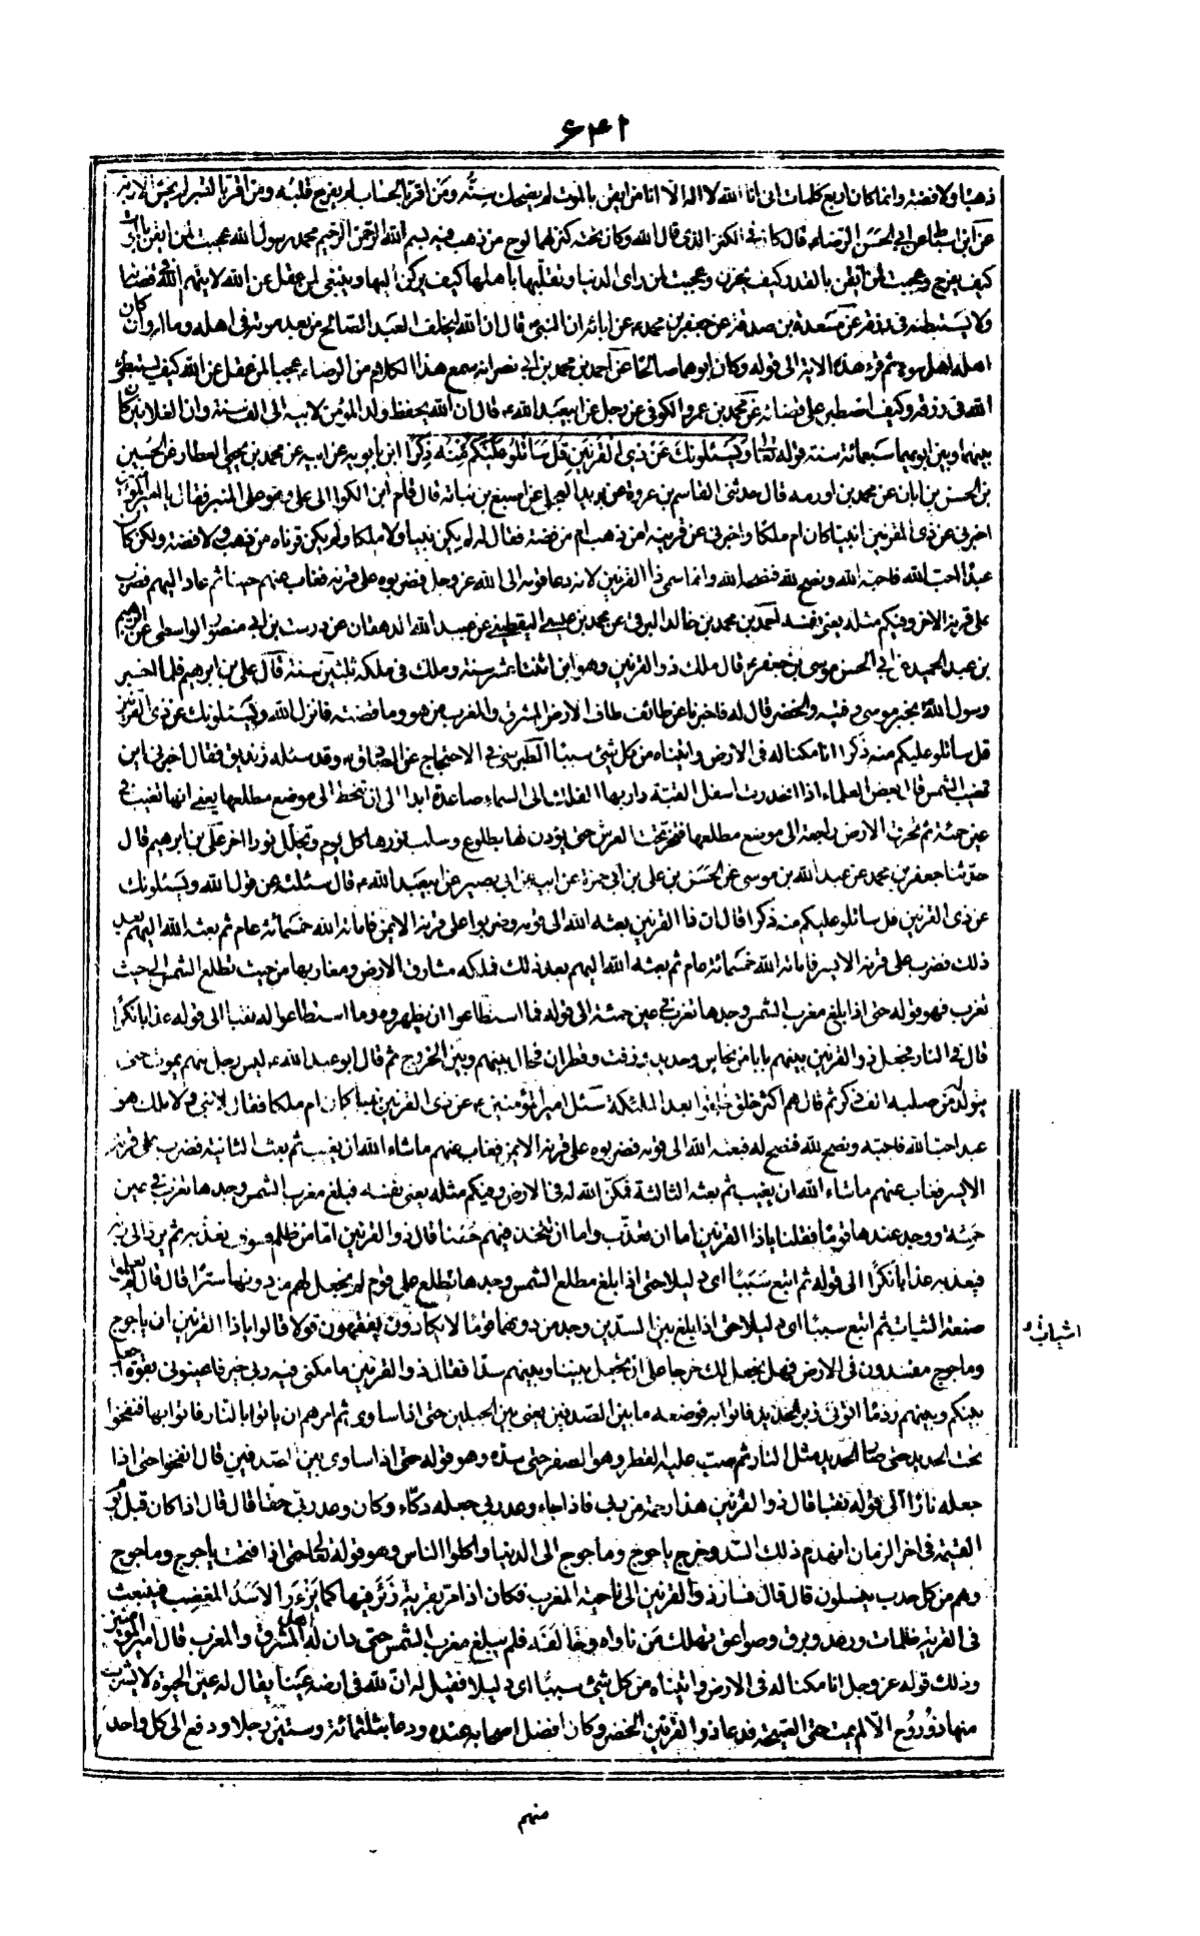 ۶۴۲
ذهبا ولا فضة وانما كان اربع كلمات انى انا الله لا اله الا انا من ايقن بالموت لم يضحك سنه ومن اقر بالحساب لم يفرح قلبه ومن اقر بالقدر لم يخش الا ربه
عن ابن اسباط عن ابي الحسن الرضا ع قال كان فى الكنز الذى قال الله وكان تحته كنز لهما لوح من ذهب فيه بسم الله الرحمن الرحيم محمد رسول الله عجبت لمن ايقن بالموت
كيف يفرح وعجبت لمن ايقن بالقدر كيف يحزن وعجبت لمن راى الدنيا وتقلبها باهلها كيف يركن اليها وينبغى لمن عقل عن الله لا يتهم الله فى قضائه
ولا يستبطئه فى رزقه عن مسعدة بن صدقة عن جعفر بن محمد ع عن ابائه ان النبى ص قال ان الله ليخلف العبد الصالح من بعد موته فى اهله وماله وان كان
اهله اهل سوء ثم قرء هذه الاية الى قوله وكان ابوهما صالحا عن احمد بن محمد بن ابي نصر انه سمع هذا الكلام من الرضا ع عجبا لمن عقل عن الله كيف يستبطئ
الله فى رزقه وكيف اصطبر على قضائه عن محمد بن عمرو الكوفى عن رجل عن ابيعبد الله ع قال ان الله يحفظ ولد المؤمن لابيه الى الف سنة وان الغلامين كان
بينهما وبين ابويهما سبعمائة سنة قوله تعالى ويسئلونك عن ذى القرنين قل ساتلو عليكم منه ذكرا ابن بابويه عن ابيه عن محمد بن يحيى العطار عن الحسين
بن الحسن بن ابان عن محمد بن اورمه قال حدثنى القاسم بن عروة عن بريد العجلى عن اصبغ بن نباتة قال قام ابن الكوا الى على ع وهو على المنبر فقال يا امير المؤمنين
اخبرنى عن ذى القرنين انبيا كان ام ملكا واخبرنى عن قرنيه امن ذهب ام من فضة فقال له لم يكن نبيا ولا ملكا ولم يكن قرناه من ذهب ولا فضة ولكن كان
عبدا احب الله فاحبه الله ونصح لله فنصحه الله وانما سمى ذا القرنين لانه دعا قومه الى الله عز وجل فضربوه على قرنه فغاب عنهم حينا ثم عاد اليهم فضرب
على قرنه الاخر وفيكم مثله يعنى نفسه احمد بن محمد بن خالد البرقى عن محمد بن عيسى اليقطينى عن عبيد الله الدهقان عن درست بن ابى منصور الواسطى عن ابرهيم
بن عبد الحميد عن ابي الحسن موسى بن جعفر ع قال ملك ذو القرنين وهو ابن اثنتا عشر سنة وملك فى ملكه ثلثين سنة قال على بن ابرهيم فلما اخبر
رسول الله ص بخبر موسى وفتيه والخضر قال له فاخبرنا عن طائف طاف الارض المشرق والمغرب من هو وما قصته فانزل الله ويسئلونك عن ذى القرنين
قل ساتلو عليكم منه ذكرا انا مكنا له فى الارض واتيناه من كل شئ سببا الطبرسى فى الاحتجاج عن الصادق ع وقد سئله زنديق فقال اخبرنى اين
تغيب الشمس قال بعض العلماء اذا انحدرت اسفل القبة دار بها الفلك الى السماء صاعدة ابدا الى ان تنحط الى موضع مطلعها يعنى انها تغيب فى
عين حمئة ثم تخرق الارض راجعة الى موضع مطلعها فتخر تحت العرش حتى يؤذن لها بطلوع وسلب نورها كل يوم وتجلل نورا اخر على بن ابرهيم قال
حدثنا جعفر بن محمد عن عبد الله بن موسى عن الحسن بن على بن ابى حمزة عن ابيه عن ابي بصير عن ابيعبد الله ع قال سئلته عن قول الله ويسئلونك
عن ذى القرنين قل ساتلو عليكم منه ذكرا قال ان ذا القرنين بعثه الله الى قومه وضربوا على قرنه الايمن فاماته الله خمسمائة عام ثم بعثه الله اليهم بعد
ذلك فضرب على قرنه الايسر فاماته الله خمسمائة عام ثم بعثه الله اليهم بعد ذلك فملكه مشارق الارض ومغاربها من حيث تطلع الشمس الى حيث
تغرب فهو قوله حتى اذا بلغ مغرب الشمس وجدها تغرب فى عين حمئة الى قوله فما استطاعوا ان يظهروه وما استطاعوا له نقبا الى قوله عذابا نكرا
قال فى النار فجعل ذو القرنين بينهم بابا من نحاس وحديد وزفت وقطران فحال بينهم وبين الخروج ثم قال ابو عبد الله ع ليس رجل منهم يموت حتى
يولد من صلبه الف ذكر ثم قال هم اكثر خلق خلقوا بعد الملئكة سئل امير المؤمنين ع عن ذى القرنين نبيا كان ام ملكا فقال لا نبى ولا ملك هو
عبد احب الله فاحبه ونصح لله فنصح له فبعثه الله الى قومه فضربوه على قرنه الايمن فغاب عنهم ماشاء الله ان يغيب ثم بعث الثانية فضرب على قرنه
الايسر فغاب عنهم ماشاء الله ان يغيب ثم بعثه الثالثة فمكن الله له فى الارض وفيكم مثله يعنى نفسه فبلغ مغرب الشمس وجدها تغرب فى عين
حمئة ووجد عندها قوما فقلنا يا ذا القرنين اما ان تعذب واما ان تتخذ فيهم حسنا قال ذو القرنين اما من ظلم فسوف نعذبه ثم يرد الى ربه
فيعذبه عذابا نكرا الى قوله ثم اتبع سببا اى دليلا حتى اذا بلغ مطلع الشمس وجدها تطلع على قوم لم يجعل لهم من دونها سترا قال قال لم يعلموا
صنعة الثياب ثم اتبع سببا اى دليلا حتى اذا بلغ بين السدين وجد من دونهما قوما لا يكادون يفقهون قولا قالوا يا ذا القرنين ان ياجوج
وماجوج مفسدون فى الارض فهل نجعل لك خرجا على ان تجعل بيننا وبينهم سدا فقال ذو القرنين ما مكنى فيه ربى خير فاعينونى بقوة اجعل
بينكم وبينهم ردما اتونى زبر الحديد فاتوا به فوضعه ما بين الصدفين يعنى بين الجبلين حتى اذا ساوى ثم امرهم ان ياتوا بالنار فاتوا بها فنفخوا
تحت الحديد حتى صار الحديد مثل النار ثم صب عليه القطر وهو الصفر حتى سده وهو قوله حتى اذا ساوى بين الصدفين قال انفخوا حتى اذا
جعله نارا الى قوله نقبا قال ذو القرنين هذا رحمة من ربى فاذا جاء وعد ربى جعله دكاء وكان وعد ربى حقا قال قال اذا كان قبل يوم
القيمة فى اخر الزمان انهدم ذلك السد وخرج ياجوج وماجوج الى الدنيا واكلوا الناس وهو قوله تعالى حتى اذا فتحت ياجوج وماجوج
وهم من كل حدب ينسلون قال قال فسار ذو القرنين الى ناحية المغرب فكان اذا مر بقرية زئر فيها كما يزئر الاسد المغضب فينبعث
فى القرية ظلمات ورعد وبرق وصواعق تهلك من ناواه وخالفه فلم يبلغ مغرب الشمس حتى دان له اهل المشرق والمغرب قال امير المؤمنين
وذلك قوله عز وجل انا مكنا له فى الارض واتيناه من كل شئ سببا اى دليلا فقيل له ان لله فى ارضه عينا يقال له عين الحيوة لا يشرب
منها ذو روح الا لم يمت حتى الصيحة فدعا ذو القرنين الخضر وكان افضل اصحابه عنده ودعا بثلثمائة وستين رجلا ودفع الى كل واحد
منهم